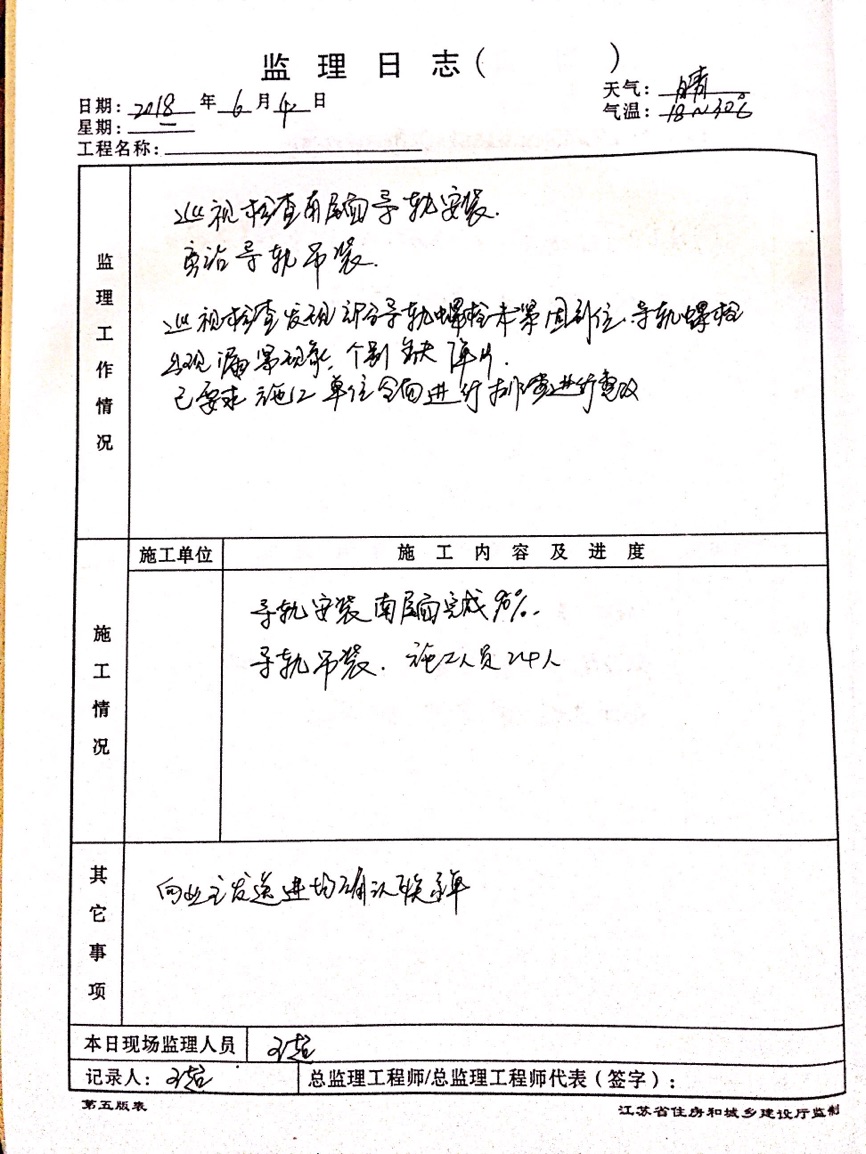 监理日志( )
日期: 2018 年 6 月 日
天气: 晴
星期: 二
气温: 18~30℃
工程名称:
监理工作情况
巡视检查南屋面导轨安装.
导轨吊装.
巡视检查发现部分导轨螺栓未紧固到位.导轨螺栓
出现漏紧现象,个别缺弹片.
已要求施工单位全面进行排查进行整改
施工情况
施工单位 施工内容及进度
导轨安装南屋面完成90%.
导轨吊装. 施工人员24人
其它事项
向业主发送进场确认联系单
本日现场监理人员 王超
记录人: 王超 总监理工程师/总监理工程师代表(签字):
第五版表 江苏省住房和城乡建设厅监制